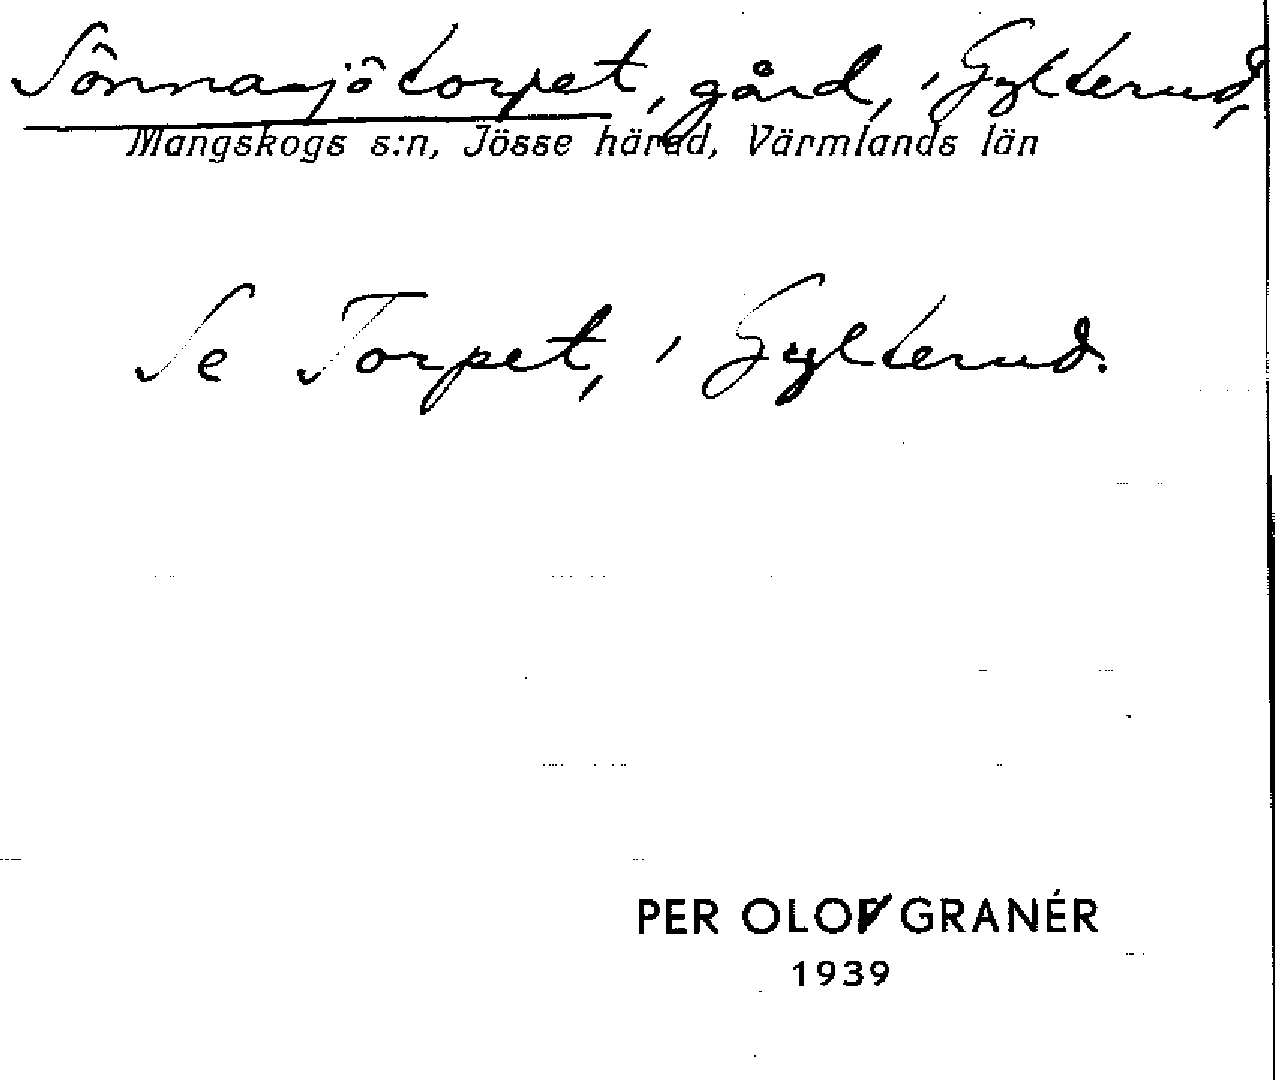 Sönnasjötorpet, gård, i Gylterud,
Mangskogs s:n, Jösse härad, Värmlands län
Se Torpet, i Gylterud.
PER OLOV GRANÉR
1939